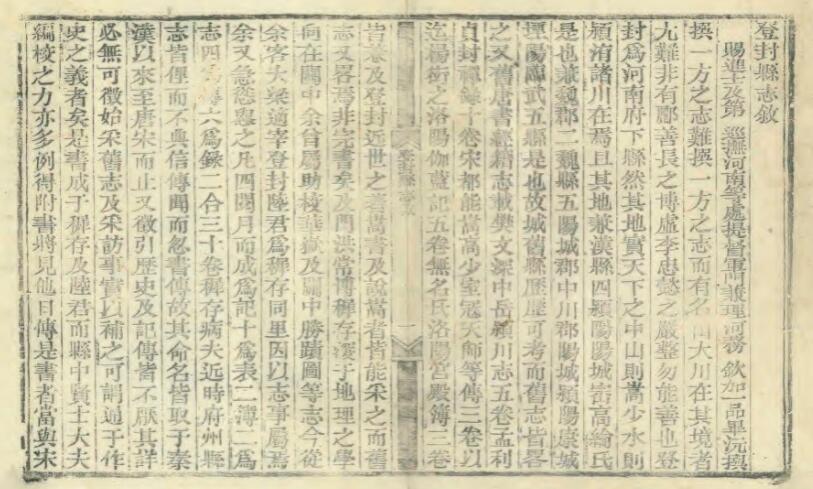 登封縣志敘
賜進士及第 巡撫河南等處提督軍門兼理河務 欽加一品畢沅撰
撰一方之志難撰一方之志而有名山大川在其境者
尤難非有酈善長之博盧李忠懿之嚴整勿能善也登
封爲河南府下縣然其地實天下之中山則嵩少水則
潁洧諸川在焉且其地兼漢縣四潁陽陽城崈高綸氏
是也兼魏郡二魏縣五陽城郡中川郡陽城潁陽康城
堙陽臨武五縣是也故城舊縣歷歷可考而舊志皆畧
之又舊唐書經籍志載樊文深中岳潁川志五卷孟利
貞封禪錄十卷宋都能嵩高少室寇天師等傳三卷以
迄楊衒之洛陽伽藍記五卷無名氏洛陽宮殿簿三卷
皆兼及登封近世之言嵩書及說嵩者皆能采之而舊
志又畧焉非完書矣及門洪常博稺存湥于地理之學
向在關中余曾屬助校華嶽及關中勝蹟圖等志今從
余客大梁適宰登封陸君爲稺存同里因以志事屬焉
余又急慫恿之凡四閱月而成爲記十爲表二簿一爲
志四爲傳六爲錄二合三十卷稺存病夫近時府州縣
志皆俚而不典信傳聞而忽書傳故其命名皆取于秦
漢以來至唐宋而止又徵引歷史及記傳皆不厭其詳
必無可徵始采舊志及采訪事實以補之可謂通于作
史之義者矣是書成于稺存及陸君而縣中賢士大夫
編校之力亦多例得附書將見他日傳是書者當與宋